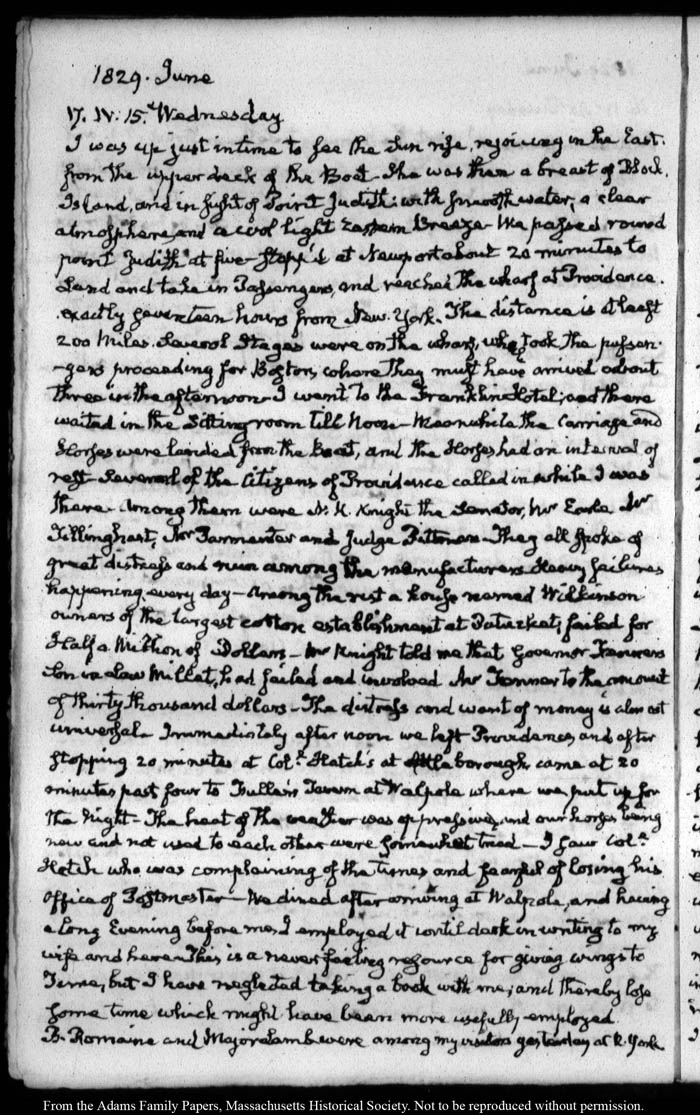 1829. June
17. IV: 15. Wednesday
I was up just in time to see the Sun rise, rejoicing in the East.
from the upper deck of the Boat. She was then a breast of Block
Island, and in sight of Point Judith: with smooth water, a clear
atmosphere, and a cool light Eastern Breeze— We passed round
point Judith at five— stopp'd at Newport about 20 minutes to
Land and take in Passengers, and reached the wharf at Providence.
exactly seventeen hours from New-York. The distance is at least
200 Miles. Several Stages were on the wharf, who took the passen-
-gers proceeding for Boston, where they must have arrived about
three in the afternoon— I went to the Franklin Hotel; and there
waited in the Sitting room till Noon— Meanwhile the Carriage and
Horses were landed from the Boat, and the Horses had an interval of
rest— Several of the Citizens of Providence called in while I was
there— Among them were N. R. Knight the Senator, Mr Earle Mr
Tillinghast, Mr Parmenter and Judge Pittman— They all spoke of
great distress and ruin among the manufacturers— Heavy failures
happening every day— Among the rest a house named Wilkinson
owners of the largest cotton establishment at Patucket, failed for
Half a Million of Dollars— Mr Knight told me that Governor Fenner's
Son in Law Mallet, had failed and involved Mr Fenner to the amount
of thirty thousand dollars— The distress and want of money is almost
universal— Immediately after noon we left Providence, and after
stopping 20 minutes at Col.l Hatch's at Attleborough came at 20
minutes past four to Fuller's Tavern at Walpole where we put up for
the Night— The heat of the weather was oppressive, and our horses being
new and not used to each other were somewhat tried— I saw Col.l
Hatch who was complaining of the times and fearful of losing his
Office of Postmaster— We dined after arriving at Walpole, and having
a long Evening before me, I employed it until dark in writing to my
wife and here— This is a never failing resource for giving wings to
Time, but I have neglected taking a book with me; and thereby lose
some time which might have been more usefully employed.
B. Romaine and Major Lamb were among my visitors yesterday at N. York
From the Adams Family Papers, Massachusetts Historical Society. Not to be reproduced without permission.